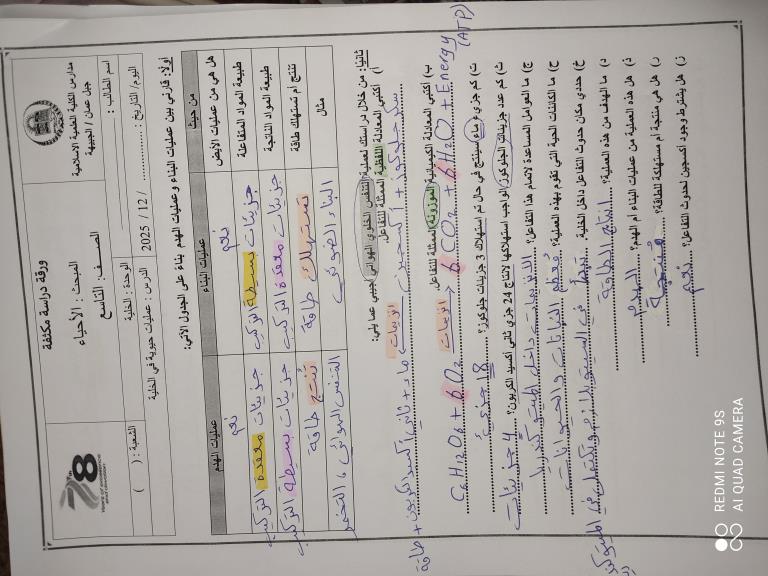 مدارس الكلية العلمية الاسلامية
جبل عمان / الجبيهة
ورقة دراسة مكثفة
78
Years of excellence
and devotion
اسم الطالب :
الصف : التاسع
المبحث : الأحياء
الشعبة : ( )
اليوم/ التاريخ : .............. / 12 / 2025
الوحدة : الخلية
الدرس : عمليات حيوية في الخلية
اولًا: قارني بين عمليات البناء وعمليات الهدم بناءً على الجدول الآتي:
من حيث عمليات البناء عمليات الهدم
هل هي من عمليات الأيض نعم نعم
طبيعة المواد المتفاعلة جزيئات بسيطة التركيب جزيئات معقدة التركيب
طبيعة المواد الناتجة جزيئات معقدة التركيب جزيئات بسيطة التركيب
تنتج أم تستهلك طاقة تستهلك طاقة تنتج طاقة
مثال البناء الضوئي التنفس الهوائي، التخمر
ثانيًا: من خلال دراستك لعملية التنفس الخلوي الهوائي اجيبي عما يلي:
أ) اكتبي المعادلة اللفظية الممثلة للتفاعل.
سكر جلوكوز + أكسجين انزيمات ماء + ثاني أكسيد الكربون + طاقة
ب) اكتبي المعادلة الكيميائية الموزونة الممثلة للتفاعل.
C6H12O6 + 6O2 انزيمات → 6CO2 + 6H2O + Energy (ATP)
ت) كم جزيء ماء سينتج في حال تم استهلاك 3 جزيئات جلوكوز؟ 18 جزيء
ث) كم عدد جزيئات الجلوكوز الواجب استهلاكها لانتاج 24 جزيء ثاني أكسيد الكربون؟ 4 جزيئات
ج) ما العوامل المساعدة لاتمام هذا التفاعل؟ الانزيمات داخل الميتوكندريا
ح) ما الكائنات الحية التي تقوم بهذه العملية؟ معظم النباتات والحيوانات
خ) حددي مكان حدوث التفاعل داخل الخلية. تبدأ في السيتوبلازم وتكتمل في الميتوكندريا
د) ما الهدف من هذه العملية؟ انتاج الطاقة
ذ) هل هذه العملية من عمليات البناء أم الهدم؟ الهدم
ر) هل هي منتجة أم مستهلكة للطاقة؟ منتجة
ز) هل يشترط وجود اكسجين لحدوث التفاعل؟ نعم
REDMI NOTE 9S
AI QUAD CAMERA